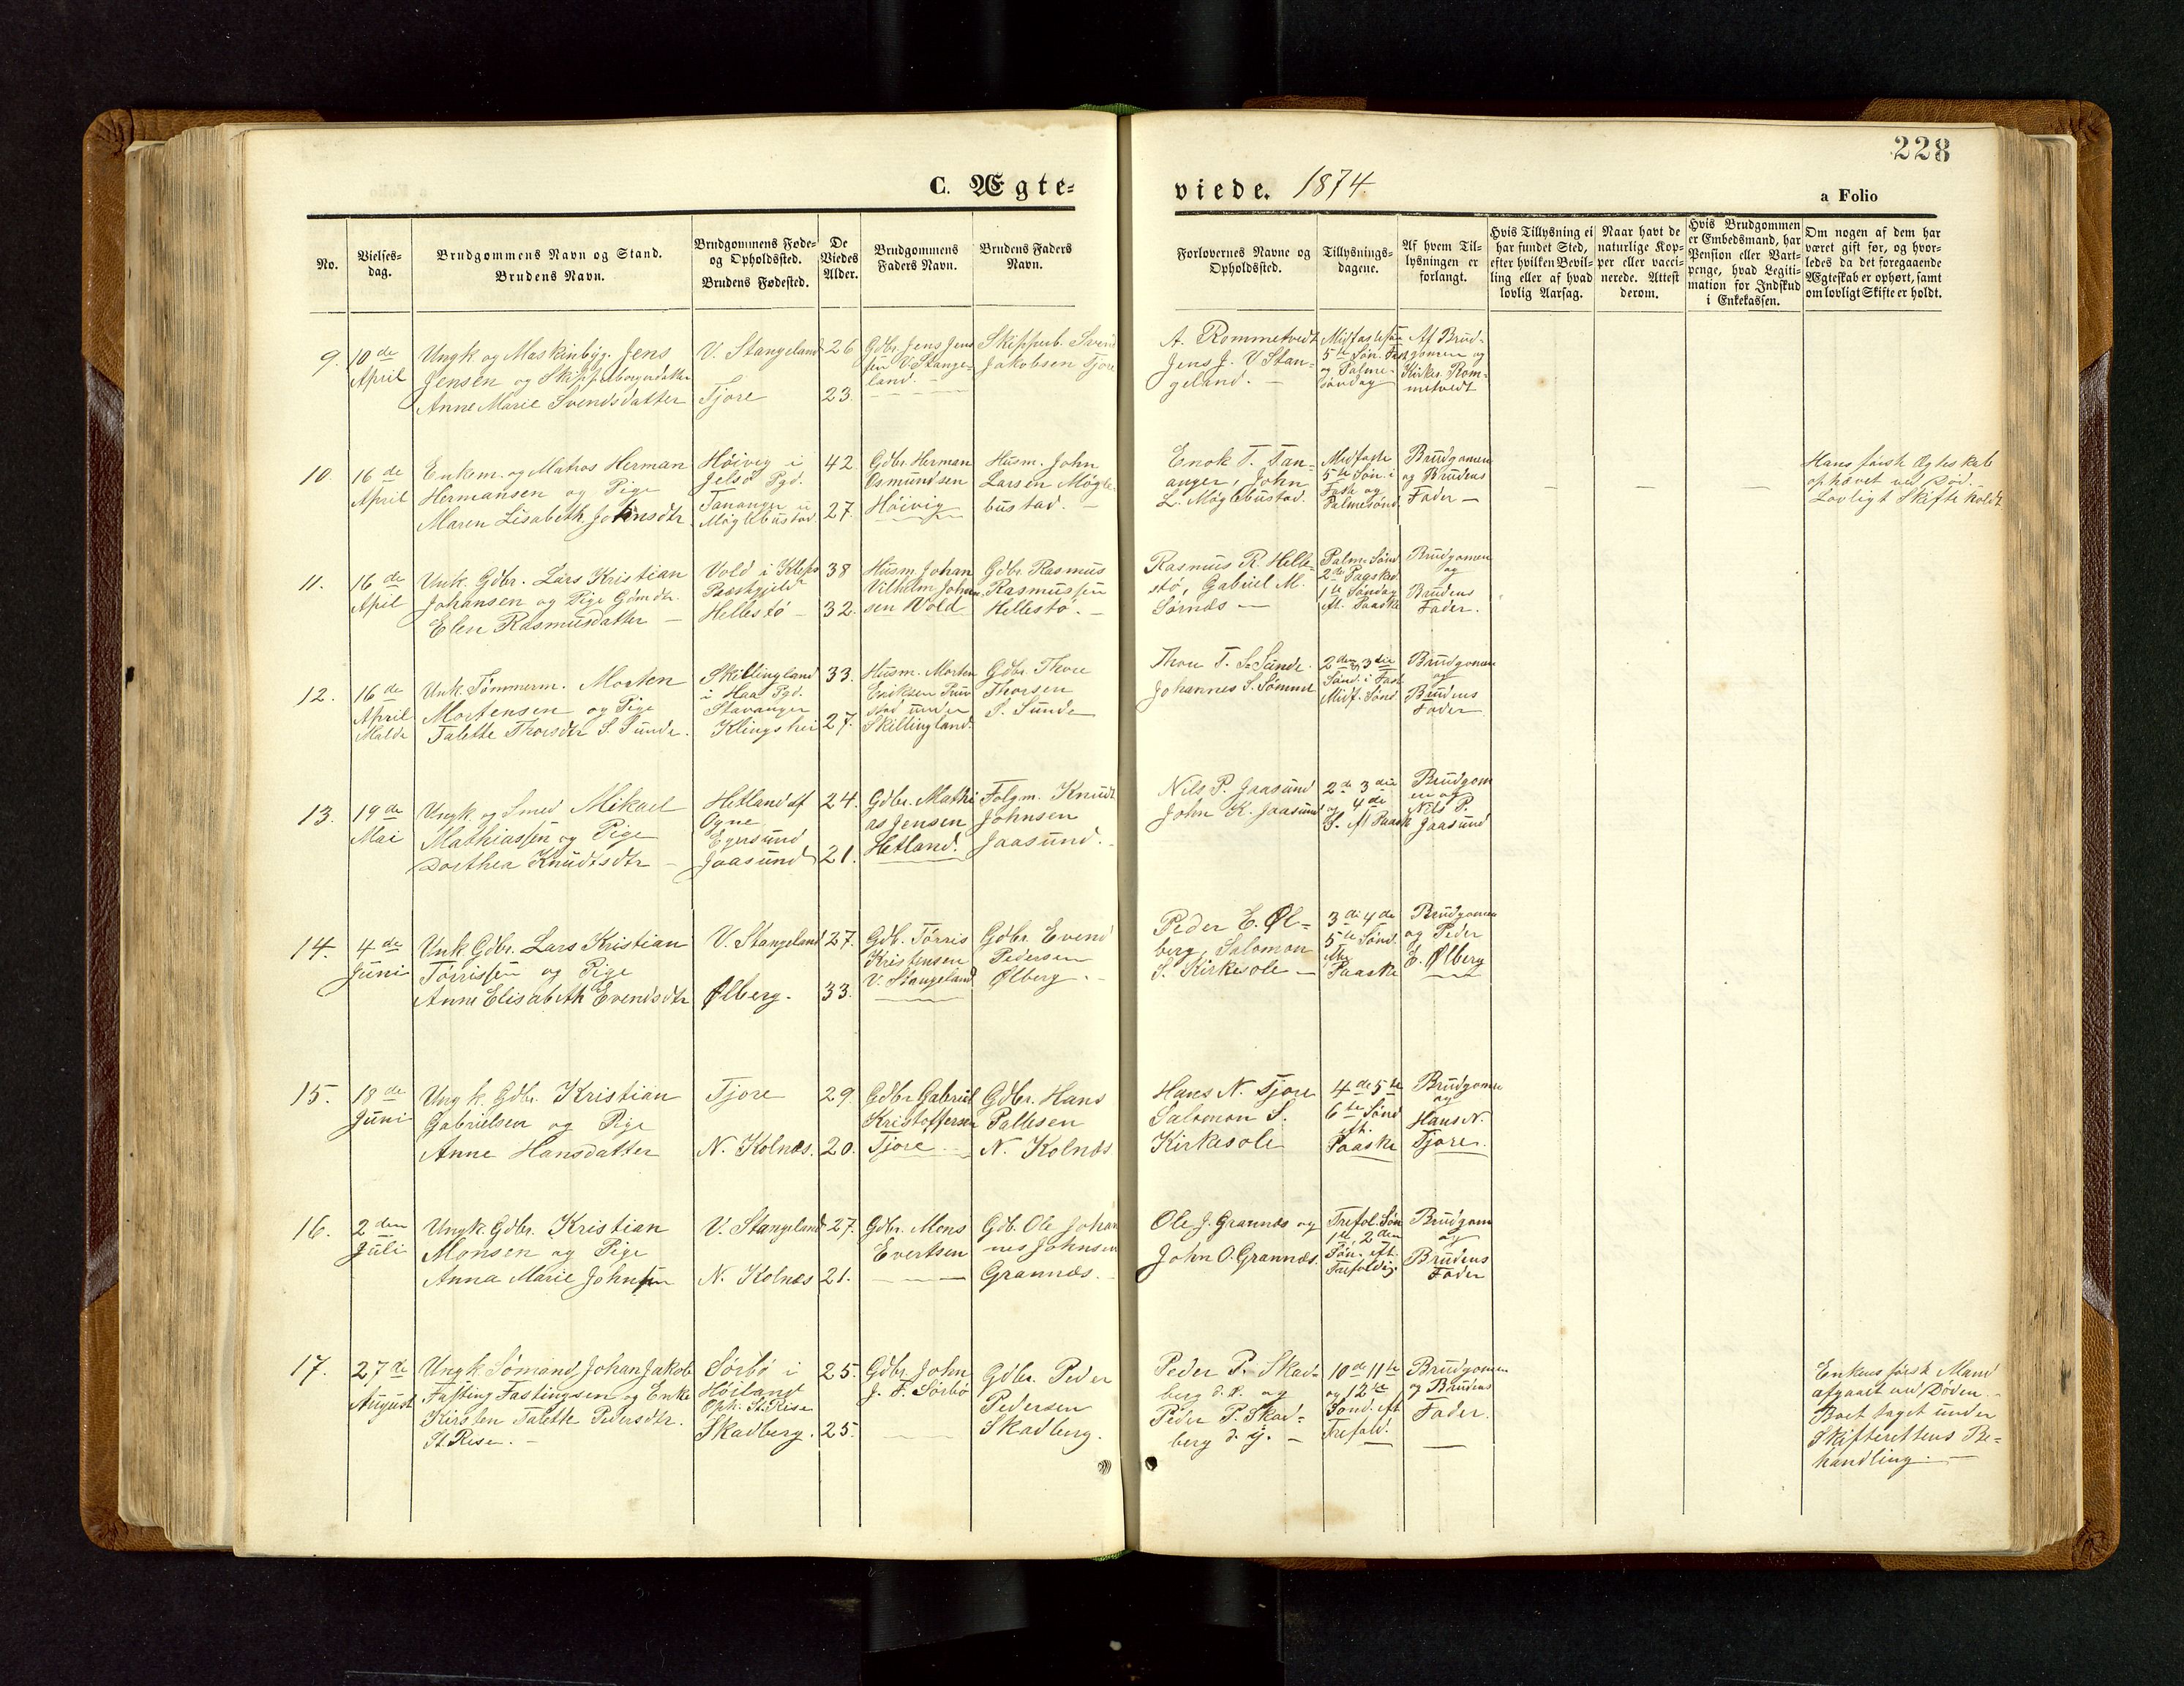 228
C. Ægte-
viede. 1874
a Folio
No.
Vielses-
dag.
Brudgommens Navn og Stand.
Brudens Navn.
Brudgommens Føde-
og Opholdssted.
Brudens Fødested.
De
Viedes
Alder.
Brudgommens
Faders Navn.
Brudens Faders
Navn.
Forlovernes Navne og
Opholdssted.
Tillysnings-
dagene.
Af hvem Til-
lysningen er
forlangt.
Hvis Tillysning ei
har fundet Sted,
efter hvilken Bevil-
ling eller af hvad
lovlig Aarsag.
Naar havt de
naturlige Kop-
per eller vacci-
nerede. Attest
derom.
Hvis Brudgommen
er Embedsmand, har
Pension eller Vart-
penge, hvad Legiti-
mation for Indskud
i Enkekassen.
Om nogen af dem har
været gift før, og hvor-
ledes da det foregaaende
Ægteskab er ophørt, samt
om lovligt Skifte er holdt.
9.
10de
April
Ungk og Maskinbyg. Jens
Jensen og Skipperborgerdatter
Anne Marie Svendsdatter
V. Stangeland
Tjore
26
23.
Gdbr. Jens Jens
sen V. Stange-
land. -
Skipperb. Svend
Jakobsen Tjore
A. Rommetvedt
Jens J. V. Stan-
geland. -
Midfastesøn
5te Søn. Fast
og Palme-
søndag
Af Brud-
gomen og
Kirkes. Rom-
metvedt
10.
16de
April
Enkem. og Matros Herman
Hermansen og Pige
Maren Lisabeth Johnsdtr
Høivig i
Jelsø Pgd.
Tananger u
Møglebustad
42
27.
Gdbr. Herman
Osmundsen
Høivig
Husm. John
Larsen Møgle-
bustad. -
Enok T. Tan-
anger, John
L. Møglebustad.
Midfaste
5te Søn. i
Fast og
Palmesønd
Brudgomen
og Brudens
Fader -
Hans første Ægteskab
ophævet ved Død. -
Lovligt Skifte holdt
11.
16de
April
Unk. Gdbr. Lars Kristian
Johansen og Pige Gdmdr.
Elen Rasmusdatter -
Vold i Klep
Præstgjeld
Hellestø -
38
32.
Husm. Johan
Vilhelm Johan
sen Vold
Gdbr Rasmus
Rasmussen
Hellestø. -
Rasmus R. Helle-
stø, Gabriel M.
Sørnæs -
Palm. Sønd
2de Paaskd.
1te Søndag
eft. Paaske
Brudgomen
og
Brudens
Fader.
12.
16de
April
Malde
Unk. Tømmerm. Morten
Mortensen og Pige
Talette Thorsdtr S. Sunde.
Skillingland
i Haa Pgd.
Stavanger
Klingshei
33.
27.
Husm. Morten
Eriksen
stad under
Skillingland.
Gdbr. Thore
Thorsen
S. Sunde
Thore T. S. Sunde.
Johannes S. Sømme
2den, 3die
Sønd. i Fast
Midf. Sønd.
Brudgomen
og
Brudens
Fader
13.
19de
Mai
Ungk. og Smed Mikael
Mathiassen og Pige
Dorthea Knudtsdtr -
Hetland af
Ogne
Egersund
Jaasund
24.
21.
Gdbr. Mathi
as Jensen
Hetland.
Folgm. Knudt
Johnsen
Jaasund. -
Nils P. Jaasund
John K. Jaasund
2de 3die
og 4de
S. eft Paask
Brudgom
en og
Nils P.
Jaasund
14.
4de
Juni
Unk. Gdbr. Lars Kristian
Tørrissen og Pige
Anne Elisabeth Evendsdtr
V. Stangeland
Ølberg.
27.
33.
Gdb. Tørris
Kristensen
V. Stangeland
Gdbr. Evend
Pedersen
Ølberg. -
Peder E. Øl-
berg, Salomon
S. Kirkesole -
3die 4de
5te Sønd.
efter
Paaske
Brudgomen
og Peder
E. Ølberg
15.
18de
Juni
Ungk. Gdbr. Kristian
Gabrielsen og Pige
Anne Hansdatter
Tjore
N. Kolnæs.
29.
20.
Gdbr Gabriel
Kristoffersen
Tjore
Gdbr. Hans
Pallesen
N. Kolnæs
Hans N. Tjore
Salomon S.
Kirkesole
4de 5te
6te Sønd
eft.
Paaske
Brudgomen
og
Hans N.
Tjore.
16.
2den
Juli
Ungk. Gdbr. Kristian
Monsen og Pige
Anna Marie Johnsen
V. Stangeland
N. Kolnæs
27.
21.
Gdbr. Mons
Evertsen
Gdb. Ole Johan
nes Johnsen
Grannæs.
Ole J. Grannæs og
John O. Grannæs.
Trefol. Søn
1te, 2den
Søn. eft.
Trefoldig.
Brudgom
og
Brudens
Fader
17.
27de
August
Ungk. Sømand Johan Jakob
Fasting Fastingsen og Enke
Kirsten Talette Pedersdtr.
St. Rise. -
Sørbø i
Høiland
Oph. St. Rise
Skadberg.
25.
25.
Gdbr John
J. F. Sørbø
Gdbr. Peder
Pedersen
Skadberg.
Peder P. Skad-
berg d. æ. og
Peder P. Skad-
berg d. y. -
10de 11te
og 12te
Sønd. eft
Trefold.
Brudgomen
og Brudens
Fader.
Enkens første Mand
afgaaet ved Døden. -
Boet taget under
Skifterettens Be-
handling. -